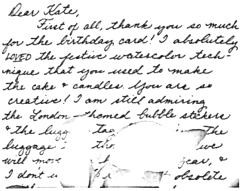 Dear Kate,
First of all, thank you so much
for the birthday card! I absolutely
LOVED the festive watercolor tech-
nique that you used to make
the cake & candles. You are so
creative! I am still admiring
the London-themed bubble stickers
& the lugg tag the
luggage tho
will move year, &
I don't u obsolete